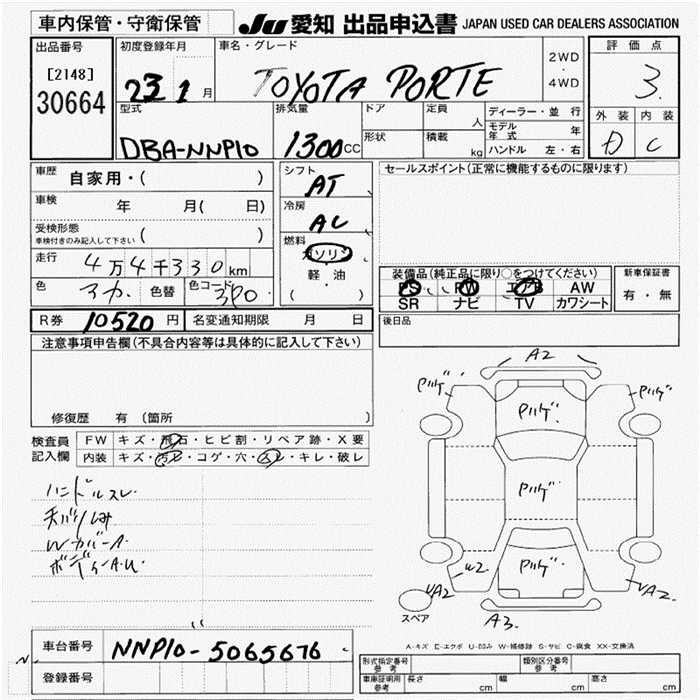 車内保管・守衛保管
JU 愛知 出品申込書 JAPAN USED CAR DEALERS ASSOCIATION
出品番号
[2148]
30664
初度登録年月
23 1 月
車名・グレード
TOYOTA PORTE
2WD
・
4WD
評価点
3.
外装 内装
D C
型式
DBA-NNP10
排気量
1300 CC
ドア
定員
人
形状
積載
kg
ディーラー・並 行
モデル年式 年
ハンドル 左・右
車歴 自家用・( )
車検 年 月( 日)
受検形態
車検付きのみ記入して下さい ( )
走行 4万4千330km
色 色替 色コード 3P0
シフト
AT
冷房
AC
燃料
ガソリン
・
軽 油
( )
セールスポイント(正常に機能するものに限ります)
装備品(純正品に限り○をつけてください)
PS PW エアB AW
SR ナビ TV カワシート
新車保証書
有・無
R券 10520 円 名変通知期限 月 日
後日品
注意事項申告欄(不具合内容等は具体的に記入して下さい)
修復歴 有 (箇所
検査員記入欄
FW キズ・飛石・ヒビ割・リペア跡・X要
内装 キズ・汚レ・コゲ・穴・スレ・キレ・破レ
ハンドルスレ
WカバーA
ボディーA.U
A2
Pハゲ Pハゲ Pハゲ
Pハゲ
Pハゲ
UA2 W2 UA2
A3
スペア
A-キズ E-エクボ U-凹み W-補修跡 S-サビ C-腐食 XX-交換済
車台番号 NNP10-5065676
登録番号
形式指定番号
参考
類別区分番号
参考
車庫証明用
参考
長さ cm 幅 cm 高さ cm